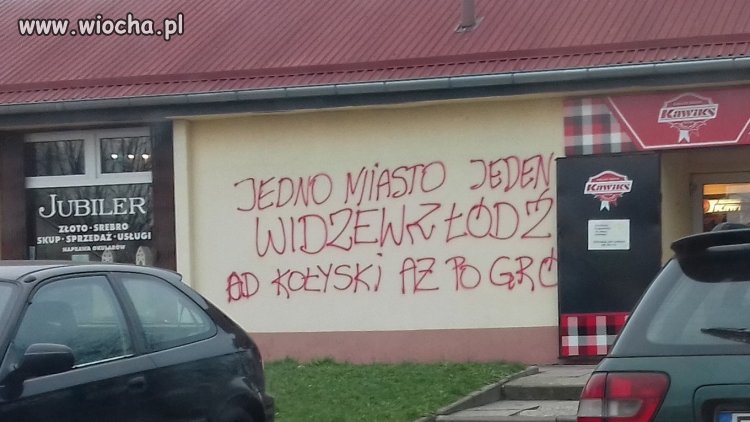 www.wiocha.pl
JUBILER
ZŁOTO · SREBRO
SKUP · SPRZEDAŻ · USŁUGI
NAPRAWA OKULARÓW
JEDNO MIASTO JEDEN
WIDZEW RŁÓDŹ
OD KOŁYSKI AŻ PO GRÓ
Kawiks
Kawiks